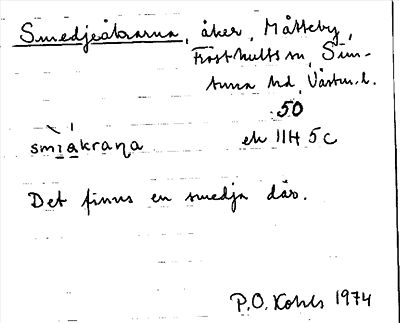 Smedjeåkrarna, åker, Måtteby,
Frösthults sn, Sim-
tuna hd, Västm. l.
50
smiakraṇa ek 11H 5c
Det finns en smedja där.
P.O. Kohls 1974